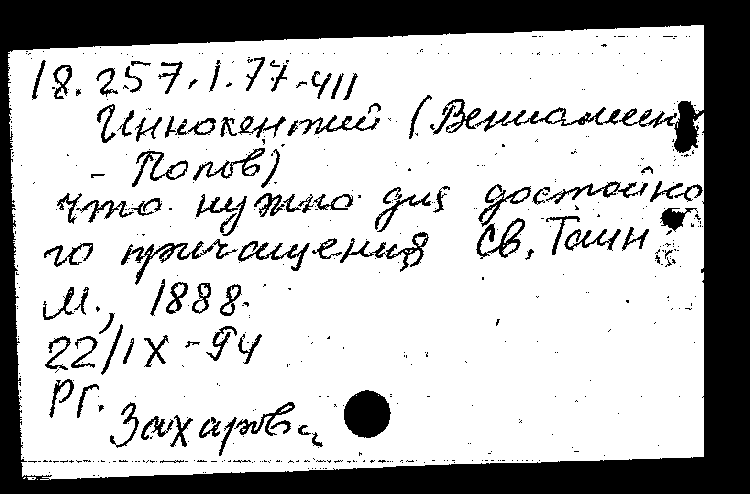 18.257.1.77-411
Иннокентий (Вениамин
- Попов)
что нужно для достойно
го причащения Св. Таин
М., 1888.
22/IX-94
РГ.
Захарова